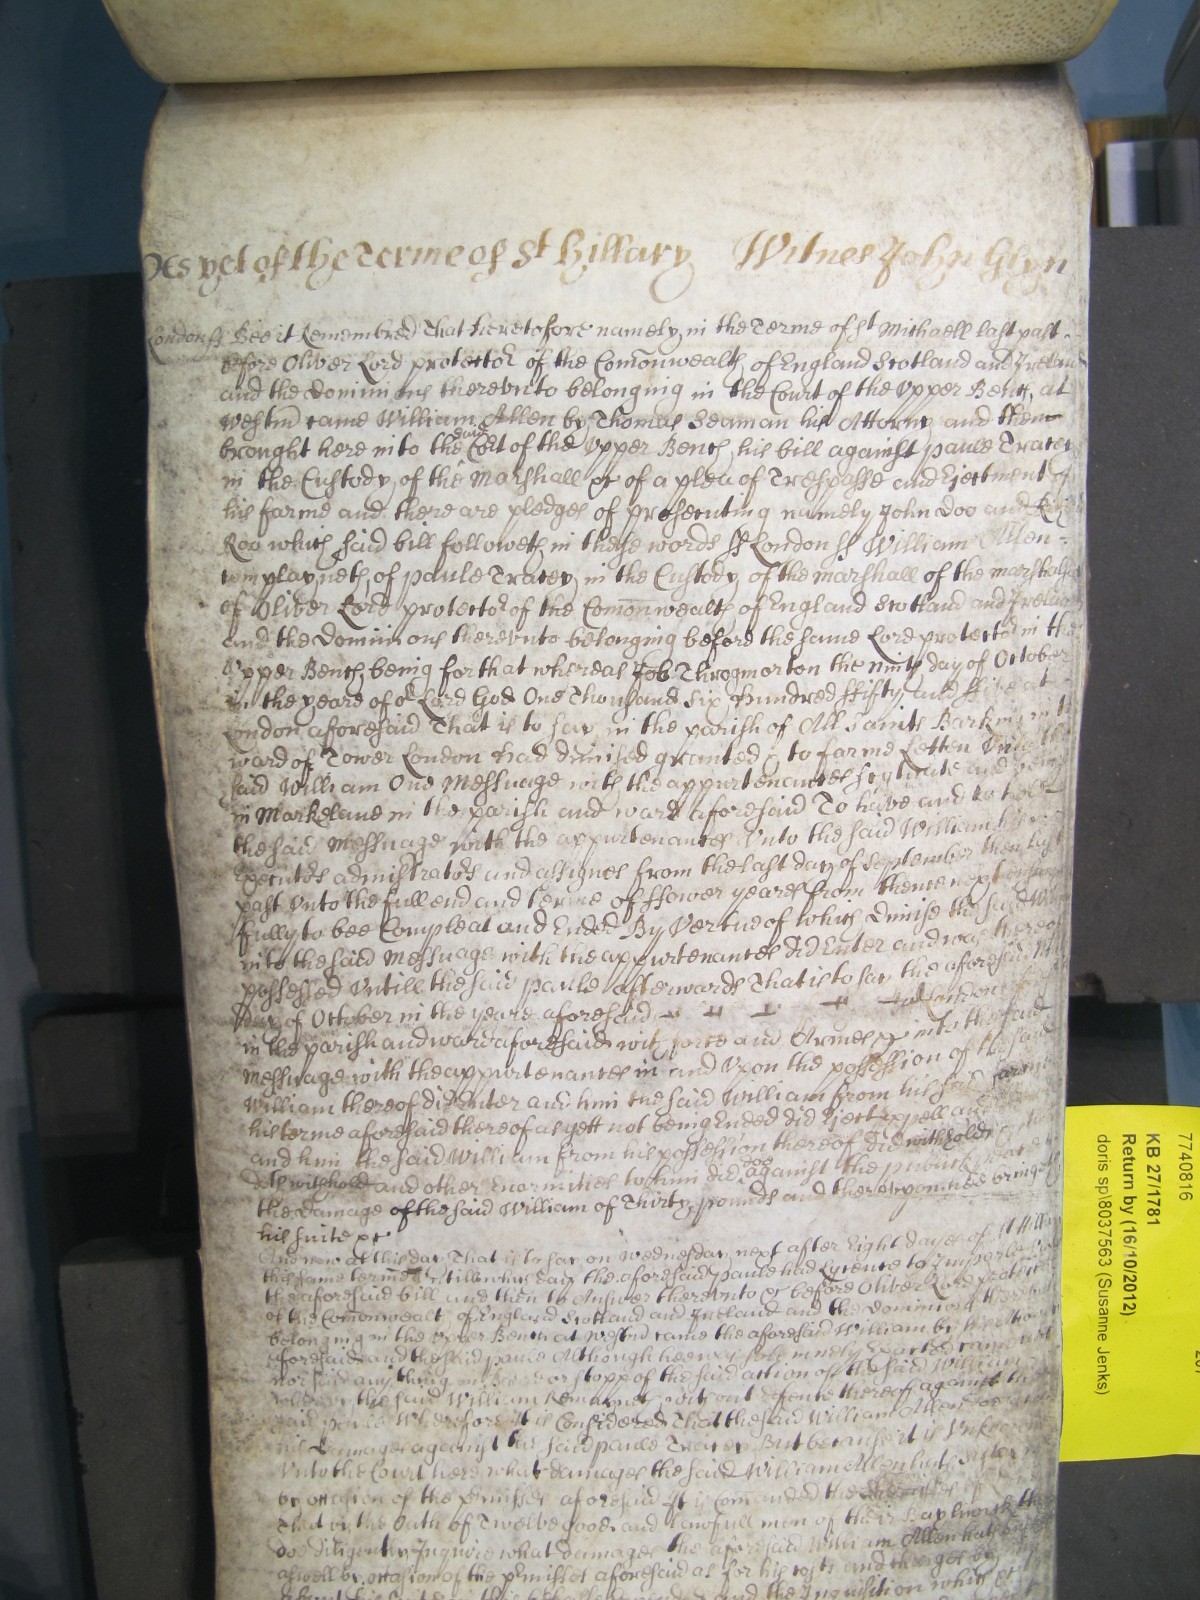 As yet of the Terme of St Hillary Witnes John Glyn
London ss Bee it Remembred That heretofore namely in the Terme of st Michaell last past
before Oliver Lord protector of the Comonwealth of England Scotland and Ireland
and the dominions therevnto belonging in the Court of the Vpper Bench at
Westmr came William Allen by Thomas Seaman his Attorny and then
brought here into the said Cort of the Vpper Bench his bill against paule Tracey
in the Custody of the Marshall &c of a plea of Trespasse and Ejectment of
his farme and there are pledges of prosecuting namely John Doo and Rich
Roo which said bill followeth in these words ss London ss William Allen
complayneth of paule Tracey in the Custody of the marshall of the marshalsea
of Oliver Lord protector of the Comonwealth of England Scotland and Ireland
and the Dominions therevnto belonging before the same Lord protector in the
Vpper Bench being for that whereas Job Throgmorton the ninth day of October
in the yeare of or Lord God One Thousand Six hundred ffifty and ffive at
London aforesaid That is to say in the parish of All Saints Barking in the
ward of Tower London had dimised granted & to farme Letten Vnto the
said William One Messuage with the appurtenances scytuate and being
in Markelane in the parish and ward aforesaid To have and to hold
the said Messuage with the appurtenances Vnto the said William his
Executors administrators and assignes from the last day of September then last
past Vnto the full end and terme of ffower yeares from thence next ensuing
fully to bee Compleat and Ended By Vertue of which dimise the said William
into the said Messuage with the appurtenances did Enter and was thereof
possessed Vntill the said paule afterwards That is to say the aforesaid ninth
day of October in the yeare aforesaid at London aforesaid
in the parish and ward aforesaid with force and Armes &c into the said
Messuage with the appurtenances in and Vpon the possession of the said
William thereof did Enter and him the said William from his said farme
his terme aforesaid thereof as yett not being Ended did Eject expell and
and him the said William from his possession thereof did withhold
doth withhold and other Enormities to him did doo against the publick peace
the damage of the said William of Thirty pounds and therevpon hee brings
his suite &c
And now at this day That is to say on Wednesday next after Eight dayes of St Hillary
this same terme Vntill which day the aforesaid paule had Lycence to Imparle to
the aforesaid bill and then to Answer therevnto &c before Oliver Lord protector
of the Comonwealth of England Scotland and Ireland and the dominions therevnto
belonging in the Vpper Bench at Westmr came the aforesaid William by his Attorny
aforesaid and the said paule Although hee was solemnely Exacted came not
nor said any thing in Barr or stopp of the said action of the said William
whereby the said William Remaynes without defence thereof against the
said paule Wherefore It is Considered That the said William Allen doe recover
his damages against the said paule Tracey But because it is Vnknowen
Vnto the Court here what damages the said William Allen hath susteyned
by occasion of the premisses aforesaid It is Comanded the Sheriffes
That by the Oath of Twelve good and lawfull men of their Baylywick they
doe diligently Inquire what damages the aforesaid William Allen hath
aswell by occasion of the premisses aforesaid as for his costs and charges by
and the Inquisition which
7740816
KB 27/1781
Return by (16/10/2012)
doris sp\8037563 (Susanne Jenks)